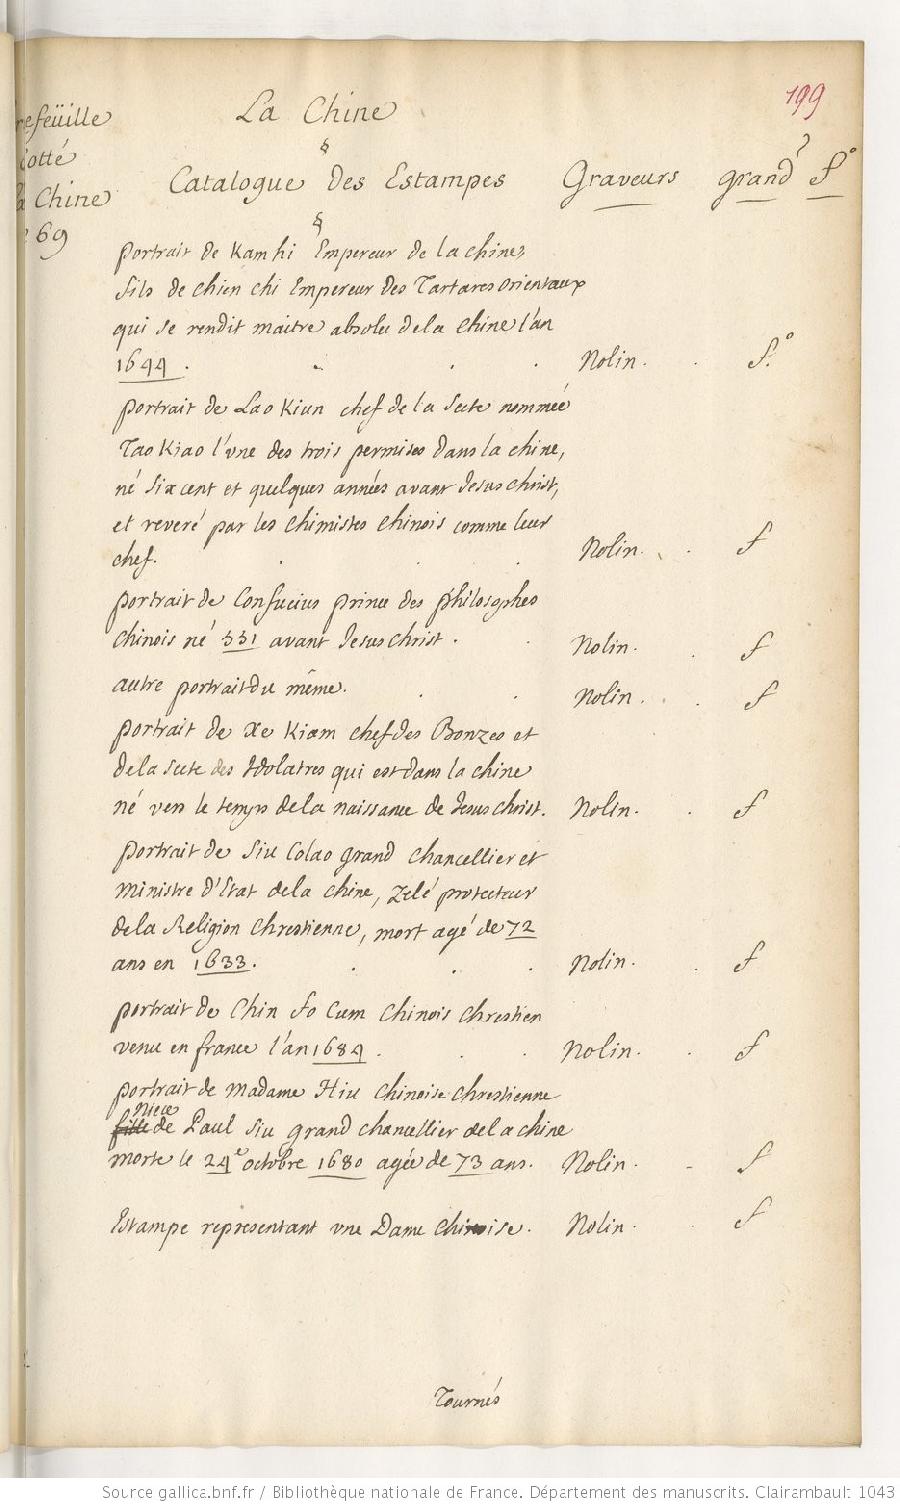 199
refëuille
cotté
Chine
69
La Chine
§
Catalogue Des Estampes Graveurs grand? f°
§
portrait de Kam hi Empereur de la chine,
fils de chien chi Empereur des Tartares orientaux
qui se rendit maitre absolu dela chine l'an
1644. Nolin. f.°
portrait de Lao Kiun chef de la secte nommée
Tao Kiao l'vne des trois permises dans la chine,
né six cent et quelques années avant Jesus christ,
et reveré par les chimistes chinois comme leur
chef. Nolin. f
portrait de Confucius prince des philosophes
chinois né 551 avant Jesus christ. Nolin. f
autre portrait du même. Nolin. f
portrait de Xe Kiam chef des Bonzes et
dela secte des Idolatres qui est dans la chine
né vers le temps dela naissance de Jesus christ. Nolin. f
portrait de Siu Colao grand chancellier et
ministre d'Etat dela chine, zelé protecteur
dela Religion chrestienne, mort agé de 72
ans en 1633. Nolin. f
portrait de Chin fo Cum chinois chrestien
venu en france l'an 1684. Nolin. f
portrait de madame Hiu chinoise chrestienne
niece
fille de Paul Siu grand chancellier dela chine
morte le 24e octobre 1680 agée de 73 ans. Nolin. f
Estampe representant vne Dame chinoise. Nolin. f
Tournés
Source gallica.bnf.fr / Bibliothèque nationale de France. Département des manuscrits. Clairambault 1043